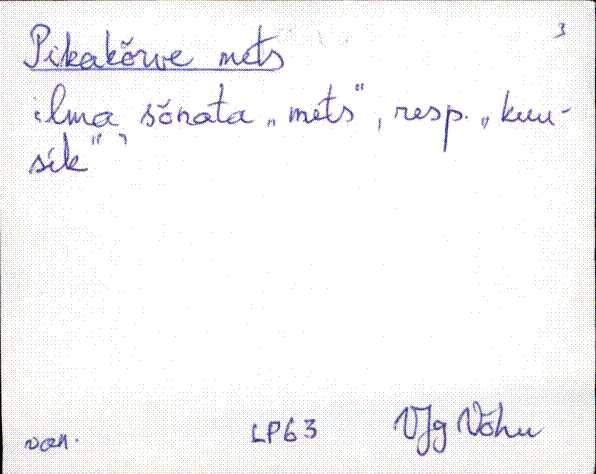 3
Pikakõrve mets
ilma sõnata „mets", resp. „kuu-
sik"
van. LP63 VJg Võhu